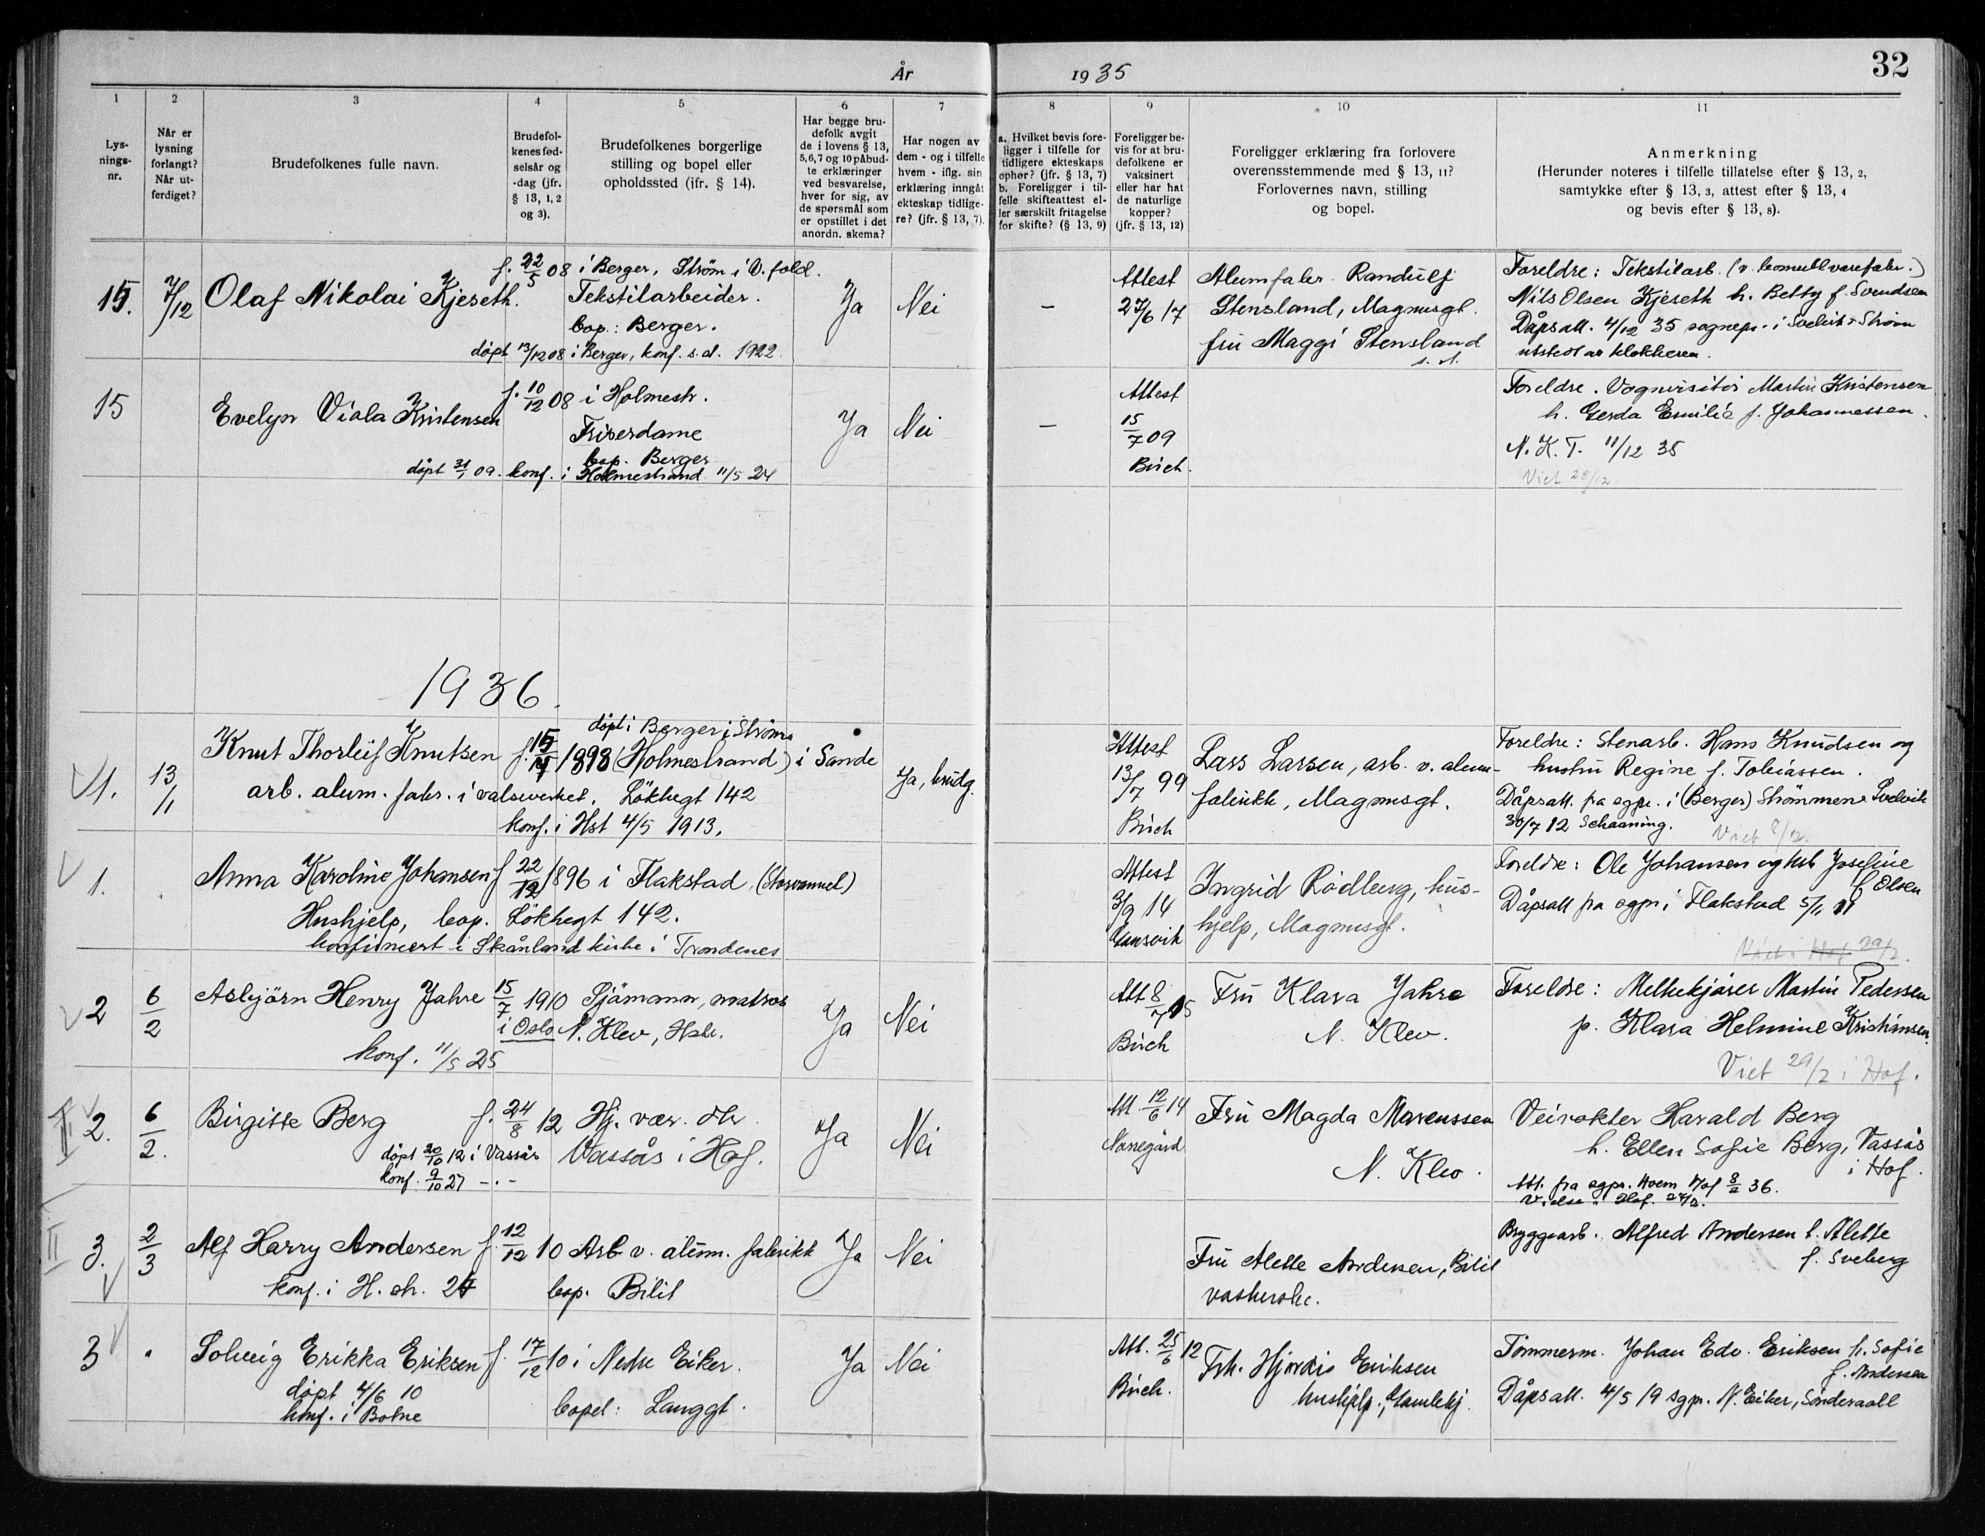 År 1935
32
1 2 3 4 5 6 7 8 9 10 11
Lys-
nings-
nr.
Når er
lysning
forlangt?
Når ut-
ferdiget?
Brudefolkenes fulle navn.
Brudefol-
kenes fød-
selsår og
-dag (jfr.
§ 13, 1, 2
og 3).
Brudefolkenes borgerlige
stilling og bopel eller
opholdssted (jfr. § 14).
Har begge bru-
defolk avgit
de i lovens § 13,
5,6,7 og 10 påbud-
te erklæringer
ved besvarelse,
hver for sig, av
de spørsmål som
er opstillet i det
anordn. skema?
Har nogen av
dem - og i tilfelle
hvem - iflg. sin
erklæring inngåt
ekteskap tidlige-
re? (jfr. § 13, 7).
a. Hvilket bevis fore-
ligger i tilfelle for
tidligere ekteskaps
ophør? (jfr. § 13, 7)
b. Foreligger i til-
felle skifteattest el-
ler særskilt fritagelse
for skifte? (§ 13, 9)
Foreligger be-
vis for at bru-
defolkene er
vaksinert
eller har hat
de naturlige
kopper?
(jfr. § 13, 12)
Foreligger erklæring fra forlovere
overensstemmende med § 13, 11?
Forlovernes navn, stilling
og bopel.
Anmerkning
(Herunder noteres i tilfelle tillatelse efter § 13, 2,
samtykke efter § 13, 3, attest efter § 13, 4
og bevis efter § 13, 8).
15. 7/12 Olaf Nikolai Kjeseth.
f. 22/5 08 i Berger, Strøm i V.fold.
Tekstilarbeider.
bop.: Berger.
døpt 13/12 08 i Berger, konf. s.st. 1922
Ja Nei –
Attest
27/6 17
Alumfabr. Randulf
Stensland, Magnusgt.
fru Maggi Stensland
s. st.
Foreldre: Tekstilarb. (v. bomullvarefabr.)
Nils Olsen Kjeseth h. Betty f. Svendsen
Dåpsatt. 4/12 35 sognepr. i Svelvik + Strøm
utstedt av klokkeren.
15 Evelyn Viola Kristensen
f. 10/12 08 i Holmestr.
Friserdame
bop. Berger
døpt 31/1 09. konf. i Holmestrand 11/5 24
Ja Nei –
Attest
15/7 09
Birch.
Foreldre. Vognvisitør Martin Kristensen
h. Gerda Emilie f. Johannessen.
N. K. T. 11/12 35
Viet 28/12
1936.
1. 13/1 Knut Thorleif Knutsen
døpt i Berger i Strøm
f. 15/4 1898 (Holmestrand) i Sande
arb. alum. fabr. i valseverket. Løkkegt 142
konf. i Hst 4/5 1913.
Ja, brudg.
Attest
13/7 99
Birch
Lars Larsen, arb. v. alum-
fabrikk, Magnusgt.
Foreldre: Stenarb. Hans Knudsen og
hustru Regine f. Tobiassen.
Dåpsatt. fra sgpr. i (Berger) Strømmen + Svelvik
30/7 12 Schaaning.
Viet 8/2.
1. Anna Karoline Johansen f 22/12 1896 i Flakstad,
Hushjelp, bop. Løkkegt 142.
konfirmert i Skånland kirke i Trondenes
Attest
3/9 14
Ingrid Rødberg, hus-
hjelp, Magnusgt.
Foreldre: Ole Johansen og hst Josefine
f. Olsen
Dåpsatt fra sgpr i Flakstad 5/1 11
Viet i Hof 29/2.
2 6/2 Asbjørn Henry Jahre 15/7 1910 Sjømann, matros
i Oslo N. Klev, Hstr.
konf. 11/5 25
Ja Nei
Att 8/7 15
Birch
Fru Klara Jahre
N. Klev.
Foreldre: Melkekjører Martin Pedersen
p. Klara Helmine Kristiansen.
Viet 29/2 i Hof.
2. 6/2. Birgitte Berg f. 24/8 12 Hj. vær.
døpt 20/10 12 i Vassås Vassås i Hof.
konf. 9/10 27 – . –
Ja Nei
Att. 12/6 14
Norregård
Fru Magda Marenssen
N. Klev.
Veivokter Harald Berg
h. Ellen Sofie Berg, Vassås
i Hof.
Att. fra sgpr. Hoem Hof 8/2 36.
Vielse i Hof. 29/2.
3. 2/3 Alf Harry Andersen f. 12/12 10 Arb v. alum. fabrikk
konf. i H. ch. 24 bop. Bilit
Ja Nei
Fru Alette Andersen, Bilit
vaskerske.
Bryggearb. Alfred Andersen h. Alette
f. Sveberg
3 Solveig Erikka Eriksen f. 17/12 10 i Nedre Eiker.
døpt 4/6 10
konf. i Botne bopel: Langgt.
Ja Nei
Att. 25/6 12
Birch.
Frk. Hjørdis Eriksen
hushjelp, Gamlekj.
Tømmerm. Johan Edv. Eriksen h. Sofie
f. Andersen
Dåpsatt. 4/5 19 sgpr. N. Eiker, Sønderaall